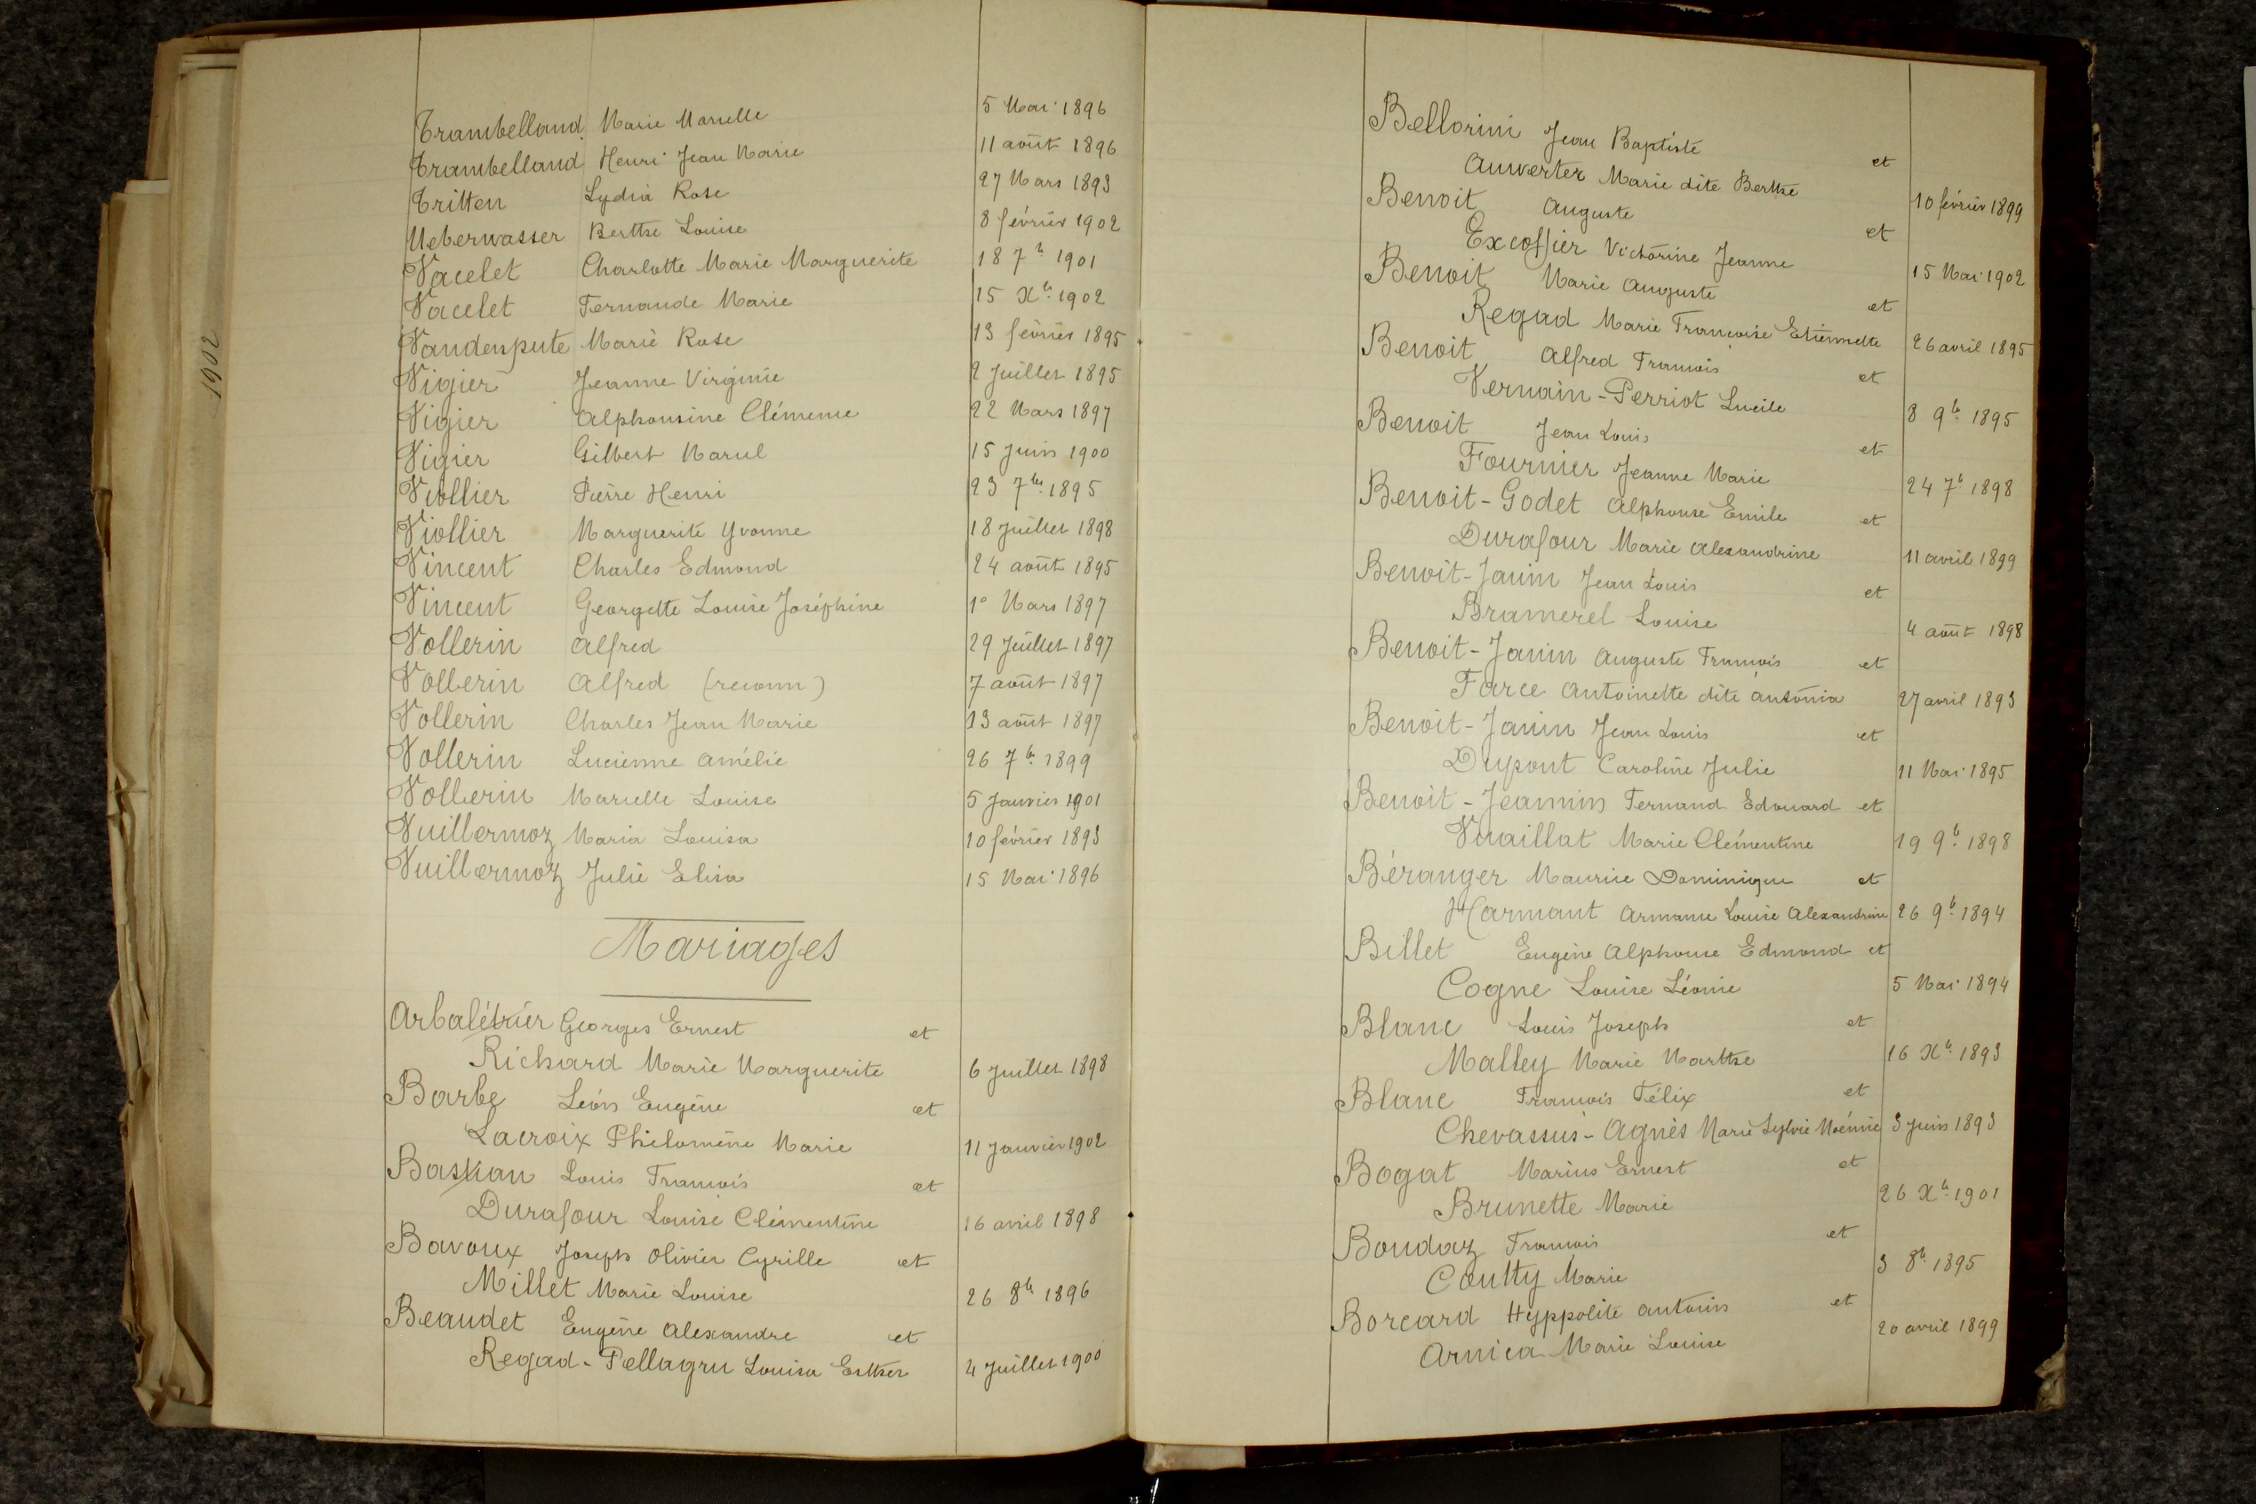 1902
Trambelland Marie Marcelle 5 Mai 1896
Trambelland Henri Jean Marie 11 août 1896
Tritten Lydia Rose 27 Mars 1893
Ueberwasser Berthe Louise 8 février 1902
Vacelet Charlotte Marie Marguerite 18 7b 1901
Vacelet Fernande Marie 15 Xb. 1902
Vandenpute Marie Rose 13 février 1895
Vigier Jeanne Virginie 2 Juillet 1895
Vigier Alphonsine Clémence 22 Mars 1897
Vigier Gilbert Marcel 15 Juin 1900
Viollier Pierre Henri 23 7bre 1895
Viollier Marguerite Yvonne 18 Juillet 1898
Vincent Charles Edmond 24 août 1895
Vincent Georgette Louise Joséphine 1° Mars 1897
Vollerin Alfred 29 Juillet 1897
Vollerin Alfred (reconn) 7 août 1897
Vollerin Charles Jean Marie 13 août 1897
Vollerin Lucienne Amélie 26 7b. 1899
Vollerin Marcelle Louise 5 Janvier 1901
Vuillermoz Maria Louisa 10 février 1893
Vuillermoz Julie Elisa 15 Mai 1896
Mariages
Arbalétrier Georges Ernest et
Richard Marie Marguerite 6 Juillet 1898
Barbe Léon Eugène et
Lacroix Philomène Marie 11 Janvier 1902
Bastian Louis François et
Durafour Louise Clémentine 16 avril 1898
Bavoux Joseph Olivier Cyrille et
Millet Marie Louise 26 8b. 1896
Beaudet Eugène Alexandre et
Regad-Pellagru Louisa Esther 4 Juillet 1900
Bellorini Jean Baptiste et
Anwerter Marie dite Berthe 10 février 1899
Benoit Auguste et
Excoffier Victorine Jeanne 15 Mai 1902
Benoit Marie Auguste et
Regad Marie Françoise Etiennette 26 avril 1895
Benoit Alfred François et
Vernain-Perriot Lucile 8 9b. 1895
Benoit Jean Louis et
Fournier Jeanne Marie 24 7b 1898
Benoit-Godet Alphonse Emile et
Durafour Marie Alexandrine 11 avril 1899
Benoit-Janin Jean Louis et
Bramerel Louise 4 août 1898
Benoit-Janin Auguste François et
Farce Antoinette dite Antonia 27 avril 1893
Benoit-Janin Jean Louis et
Dupont Caroline Julie 11 Mai 1895
Benoit-Jeannin Fernand Edouard et
Vuaillat Marie Clémentine 19 9b. 1898
Béranger Maurice Dominique et
Harmant Armance Louise Alexandrine 26 9b. 1894
Billet Eugène Alphonse Edmond et
Cogne Louise Léonie 5 Mai 1894
Blanc Louis Joseph et
Malley Marie Marthe 16 Xb. 1893
Blanc François Félix et
Chevassus-Agnès Marie Sylvie Noémie 3 Juin 1893
Bogat Marius Ernest et
Brunette Marie 26 Xb. 1901
Boudaz François et
Coutty Marie 3 8b. 1895
Borcard Hyppolite Antonin et
Arnica Marie Louise 20 avril 1899